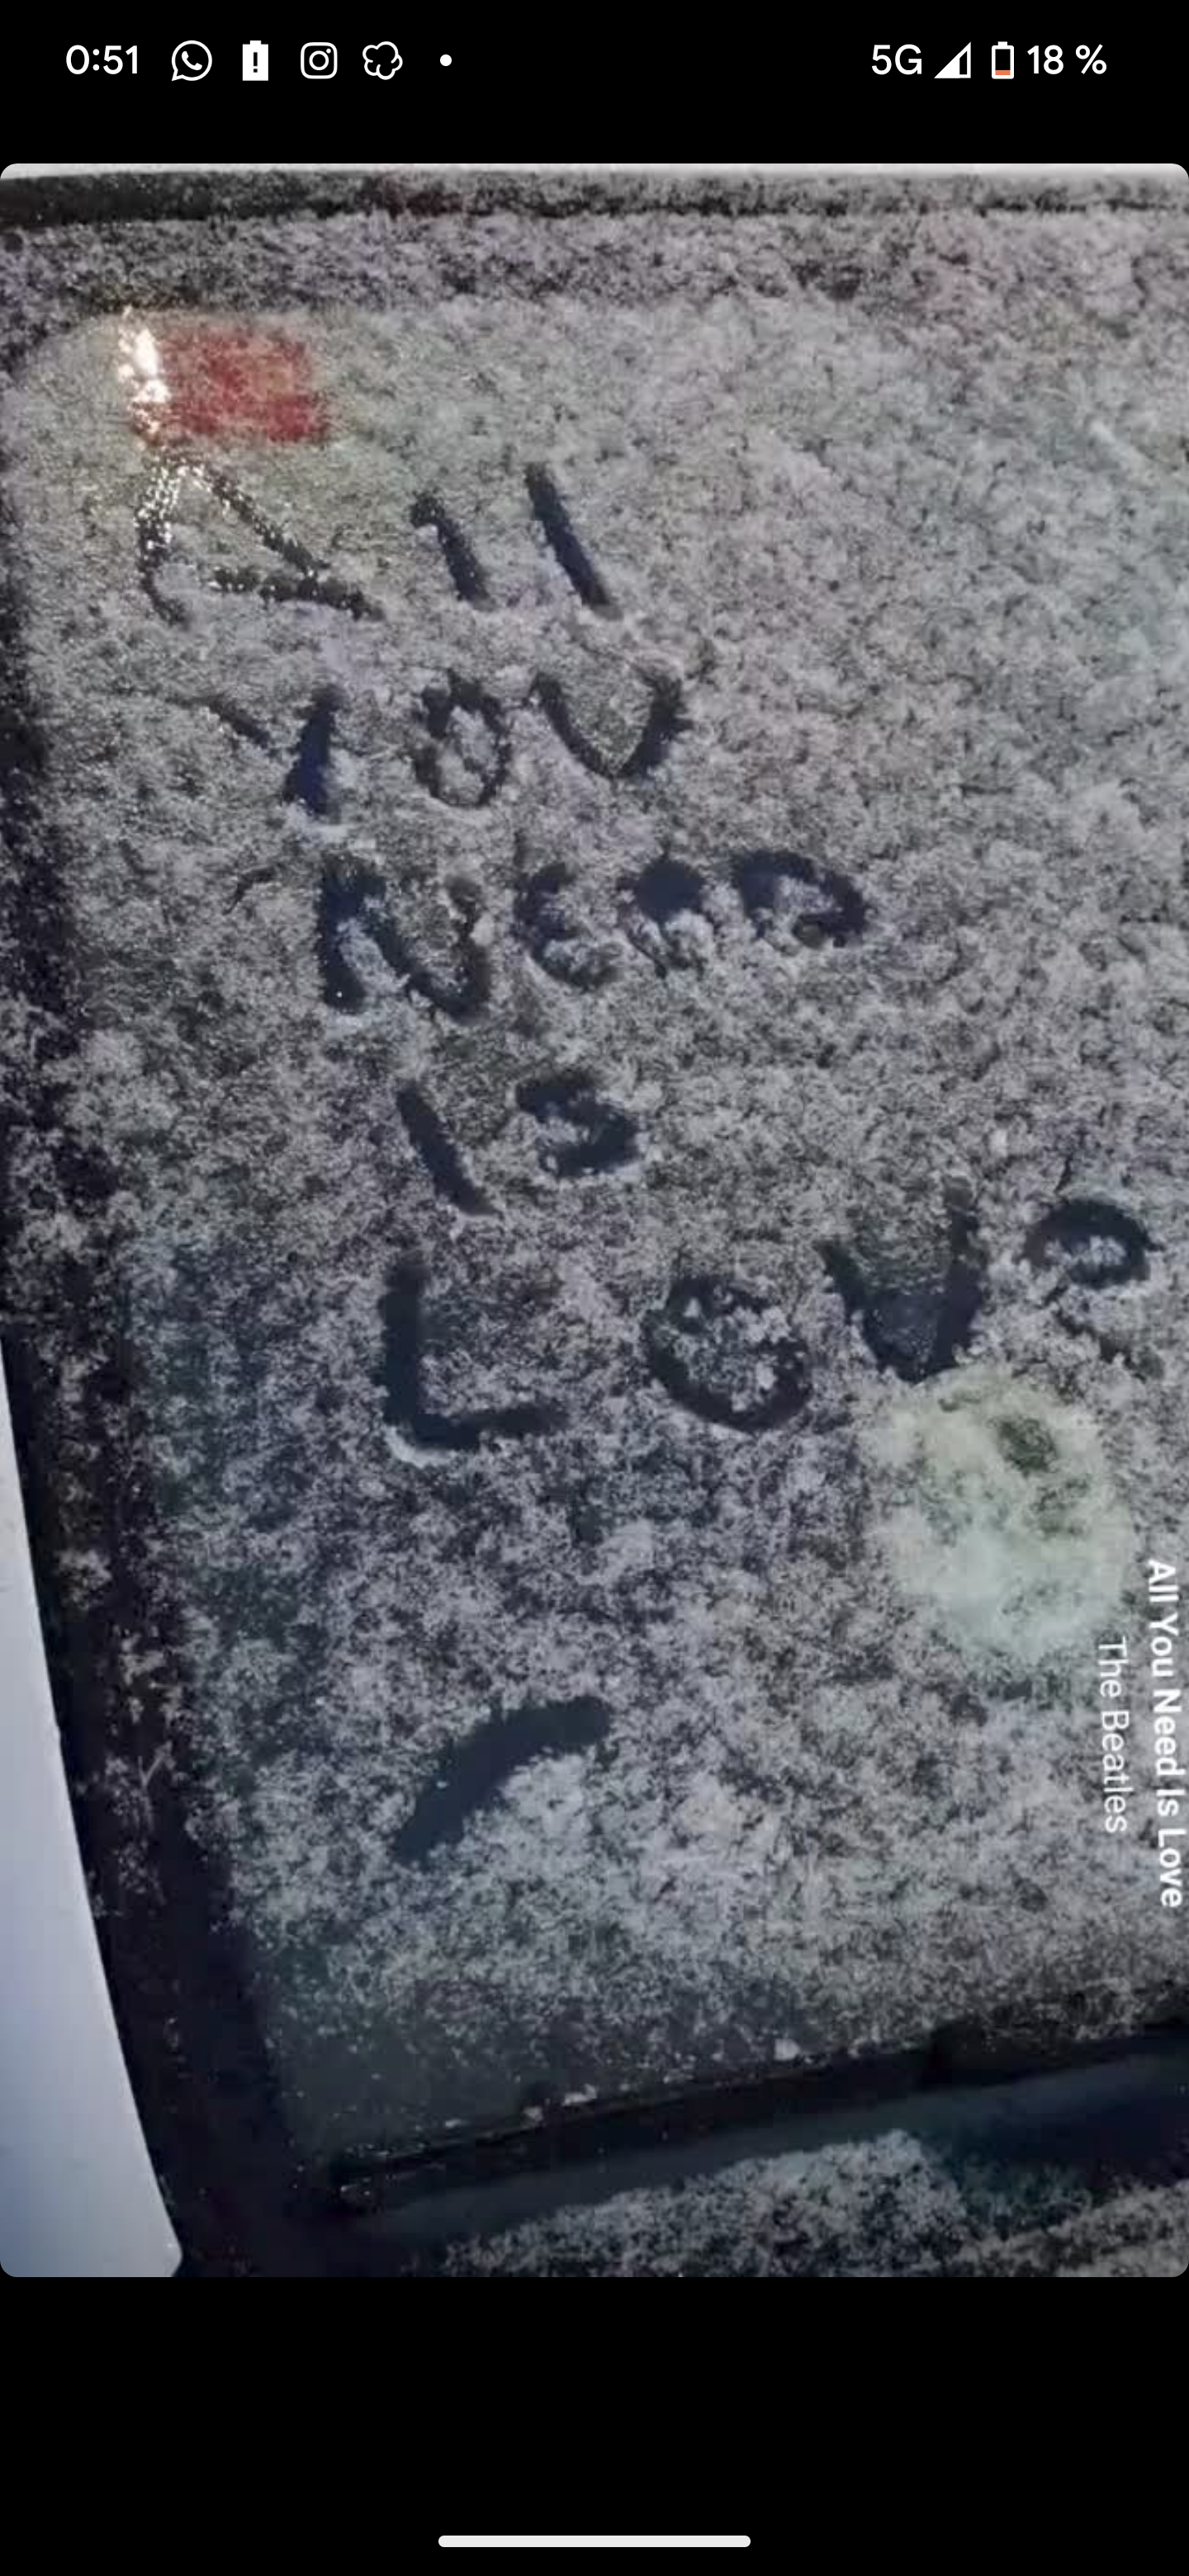 0:51
5G 18 %
All
You
Need
is
Love
All You Need Is Love
The Beatles